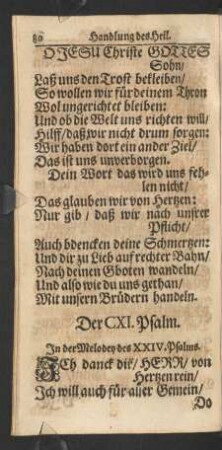 80 Handlung des Heil.
O JESU Christe GOTTES
Sohn/
Laß uns den Trost bekleiben/
So wollen wir für deinem Thron
Wol ungerichtet bleiben:
Und ob die Welt uns richten will/
Hilff/ daß wir nicht drum sorgen:
Wir haben dort ein ander Ziel/
Das ist uns unverborgen.
Dein Wort das wird uns feh-
len nicht/
Das glauben wir von Hertzen:
Nur gib / daß wir nach unsrer
Pflicht/
Auch bdencken deine Schmertzen:
Und dir zu Lieb auf rechter Bahn/
Nach deinen Gboten wandeln/
Und also wie du uns gethan/
Mit unsern Brüdern handeln.
Der CXI. Psalm.
In der Melodey des XXIV. Psalms.
ICh danck dir/ HERR/ von
Hertzen rein/
Ich will auch für aller Gemein/
Do